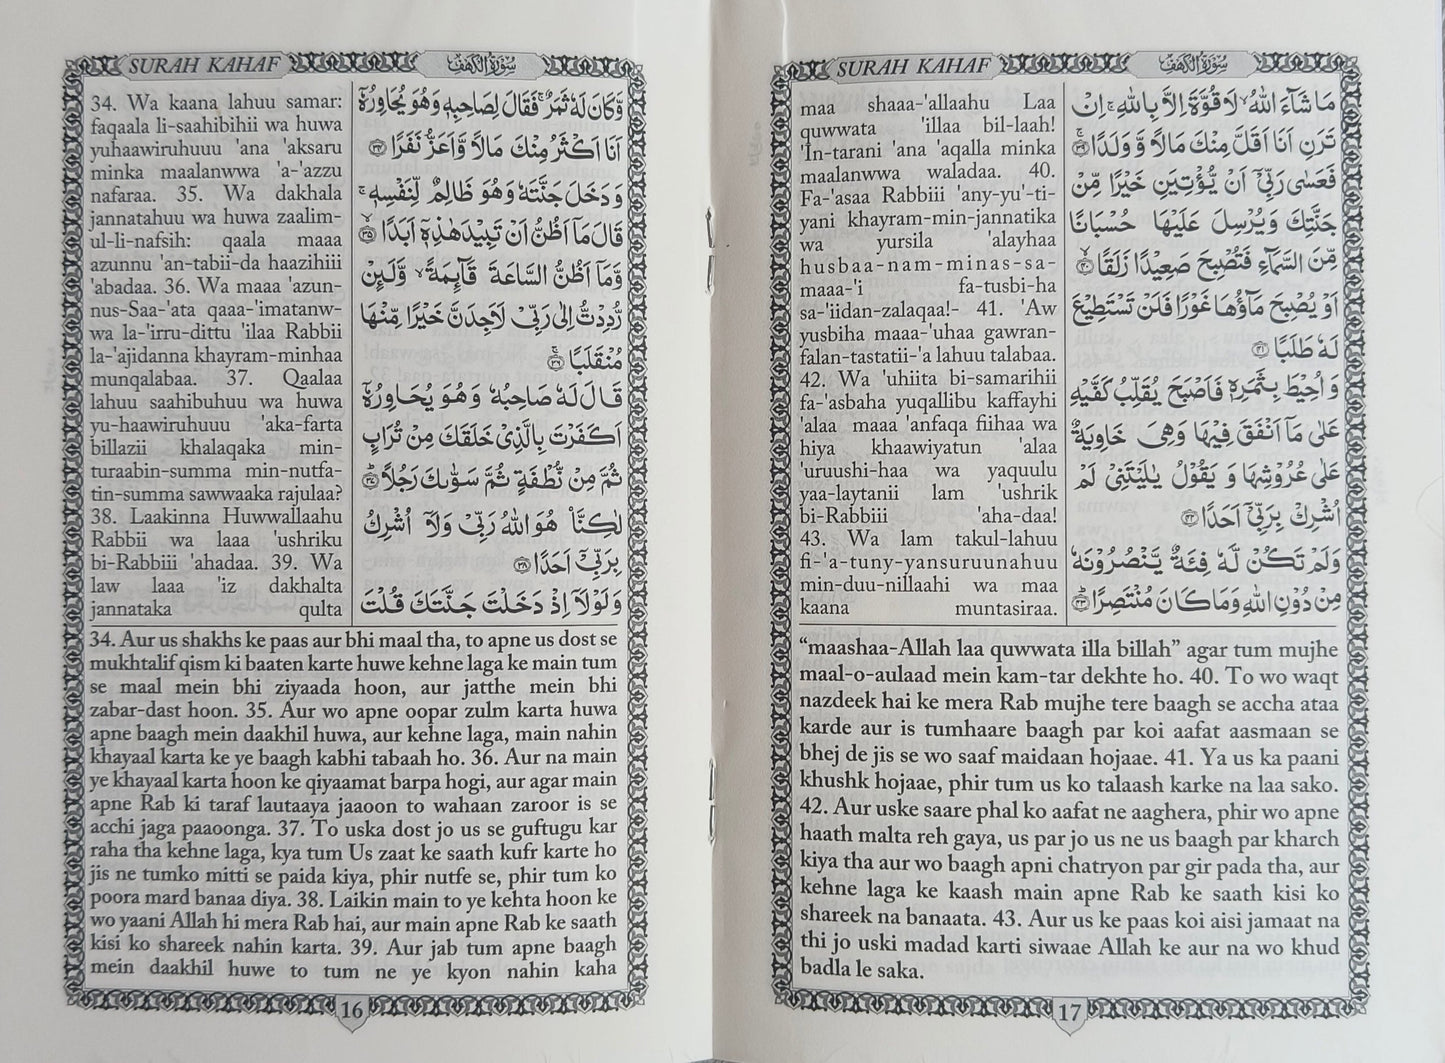 SURAH KAHAF
سُوْرَةُ الْكَهْفِ
34. Wa kaana lahuu samar:
faqaala li-saahibihii wa huwa
yuhaawiruhuuu 'ana 'aksaru
minka maalanwwa 'a-'azzu
nafaraa. 35. Wa dakhala
jannatahuu wa huwa zaalim-
ul-li-nafsih: qaala maaa
azunnu 'an-tabii-da haazihiii
'abadaa. 36. Wa maaa 'azun-
nus-Saa-'ata qaaa-'imatanw-
wa la-'irru-dittu 'ilaa Rabbii
la-'ajidanna khayram-minhaa
munqalabaa. 37. Qaalaa
lahuu saahibuhuu wa huwa
yu-haawiruhuuu 'aka-farta
billazii khalaqaka min-
turaabin-summa min-nutfa-
tin-summa sawwaaka rajulaa?
38. Laakinna Huwwallaahu
Rabbii wa laaa 'ushriku
bi-Rabbiii 'ahadaa. 39. Wa
law laaa 'iz dakhalta
jannataka qulta
وَّكَانَ لَهٗ ثَمَرٌ ۚ فَقَالَ لِصَاحِبِهٖ وَهُوَ يُحَاوِرُهٗۤ
اَنَا اَكْثَرُ مِنْكَ مَالًا وَّاَعَزُّ نَفَرًا ﴿۳۴﴾
وَ دَخَلَ جَنَّتَهٗ وَهُوَ ظَالِمٌ لِّنَفْسِهٖ ۚ
قَالَ مَاۤ اَظُنُّ اَنْ تَبِيْدَ هٰذِهٖۤ اَبَدًا ۙ﴿۳۵﴾
وَّمَاۤ اَظُنُّ السَّاعَةَ قَآئِمَةً ۙ وَّلَئِنْ
رُّدِدْتُّ اِلٰى رَبِّىْ لَاَجِدَنَّ خَيْرًا مِّنْهَا
مُنْقَلَبًا ۚ﴿۳۶﴾
قَالَ لَهٗ صَاحِبُهٗ وَهُوَ يُحَاوِرُهٗۤ
اَكَفَرْتَ بِالَّذِىْ خَلَقَكَ مِنْ تُرَابٍ
ثُمَّ مِنْ نُّطْفَةٍ ثُمَّ سَوّٰىكَ رَجُلًا ؕ﴿۳۷﴾
لٰكِنَّا۠ هُوَ اللّٰهُ رَبِّىْ وَلَاۤ اُشْرِكُ
بِرَبِّىْۤ اَحَدًا ﴿۳۸﴾
وَلَوْلَاۤ اِذْ دَخَلْتَ جَنَّتَكَ قُلْتَ
34. Aur us shakhs ke paas aur bhi maal tha, to apne us dost se
mukhtalif qism ki baaten karte huwe kehne laga ke main tum
se maal mein bhi ziyaada hoon, aur jatthe mein bhi
zabar-dast hoon. 35. Aur wo apne oopar zulm karta huwa
apne baagh mein daakhil huwa, aur kehne laga, main nahin
khayaal karta ke ye baagh kabhi tabaah ho. 36. Aur na main
ye khayaal karta hoon ke qiyaamat barpa hogi, aur agar main
apne Rab ki taraf lautaaya jaaoon to wahaan zaroor is se
acchi jaga paaoonga. 37. To uska dost jo us se guftugu kar
raha tha kehne laga, kya tum Us zaat ke saath kufr karte ho
jis ne tumko mitti se paida kiya, phir nutfe se, phir tum ko
poora mard banaa diya. 38. Laikin main to ye kehta hoon ke
wo yaani Allah hi mera Rab hai, aur main apne Rab ke saath
kisi ko shareek nahin karta. 39. Aur jab tum apne baagh
mein daakhil huwe to tum ne ye kyon nahin kaha
16
SURAH KAHAF
سُوْرَةُ الْكَهْفِ
maa shaaa-'allaahu Laa
quwwata 'illaa bil-laah!
'In-tarani 'ana 'aqalla minka
maalanwwa waladaa. 40.
Fa-'asaa Rabbiii 'any-yu'-ti-
yani khayram-min-jannatika
wa yursila 'alayhaa
husbaa-nam-minas-sa-
maaa-'i fa-tusbi-ha
sa-'iidan-zalaqaa!- 41. 'Aw
yusbiha maaa-'uhaa gawran-
falan-tastatii-'a lahuu talabaa.
42. Wa 'uhiita bi-samarihii
fa-'asbaha yuqallibu kaffayhi
'alaa maaa 'anfaqa fiihaa wa
hiya khaawiyatun 'alaa
'uruushi-haa wa yaquulu
yaa-laytanii lam 'ushrik
bi-Rabbiii 'aha-daa!
43. Wa lam takul-lahuu
fi-'a-tuny-yansuruunahuu
min-duu-nillaahi wa maa
kaana muntasiraa.
مَا شَآءَ اللّٰهُ ۙ لَا قُوَّةَ اِلَّا بِاللّٰهِ ۚ اِنْ
تَرَنِ اَنَا اَقَلَّ مِنْكَ مَالًا وَّ وَلَدًا ۚ﴿۳۹﴾
فَعَسٰى رَبِّىْۤ اَنْ يُّؤْتِيَنِ خَيْرًا مِّنْ
جَنَّتِكَ وَيُرْسِلَ عَلَيْهَا حُسْبَانًا
مِّنَ السَّمَآءِ فَتُصْبِحَ صَعِيْدًا زَلَقًا ۙ﴿۴۰﴾
اَوْ يُصْبِحَ مَآؤُهَا غَوْرًا فَلَنْ تَسْتَطِيْعَ
لَهٗ طَلَبًا ﴿۴۱﴾
وَ اُحِيْطَ بِثَمَرِهٖ فَاَصْبَحَ يُقَلِّبُ كَفَّيْهِ
عَلٰى مَاۤ اَنْفَقَ فِيْهَا وَهِىَ خَاوِيَةٌ
عَلٰى عُرُوْشِهَا وَ يَقُوْلُ يٰلَيْتَنِىْ لَمْ
اُشْرِكْ بِرَبِّىْۤ اَحَدًا ﴿۴۲﴾
وَلَمْ تَكُنْ لَّهٗ فِئَةٌ يَّنْصُرُوْنَهٗ
مِنْ دُوْنِ اللّٰهِ وَمَا كَانَ مُنْتَصِرًا ؕ﴿۴۳﴾
“maashaa-Allah laa quwwata illa billah” agar tum mujhe
maal-o-aulaad mein kam-tar dekhte ho. 40. To wo waqt
nazdeek hai ke mera Rab mujhe tere baagh se accha ataa
karde aur is tumhaare baagh par koi aafat aasmaan se
bhej de jis se wo saaf maidaan hojaae. 41. Ya us ka paani
khushk hojaae, phir tum us ko talaash karke na laa sako.
42. Aur uske saare phal ko aafat ne aaghera, phir wo apne
haath malta reh gaya, us par jo us ne us baagh par kharch
kiya tha aur wo baagh apni chatryon par gir pada tha, aur
kehne laga ke kaash main apne Rab ke saath kisi ko
shareek na banaata. 43. Aur us ke paas koi aisi jamaat na
thi jo uski madad karti siwaae Allah ke aur na wo khud
badla le saka.
17